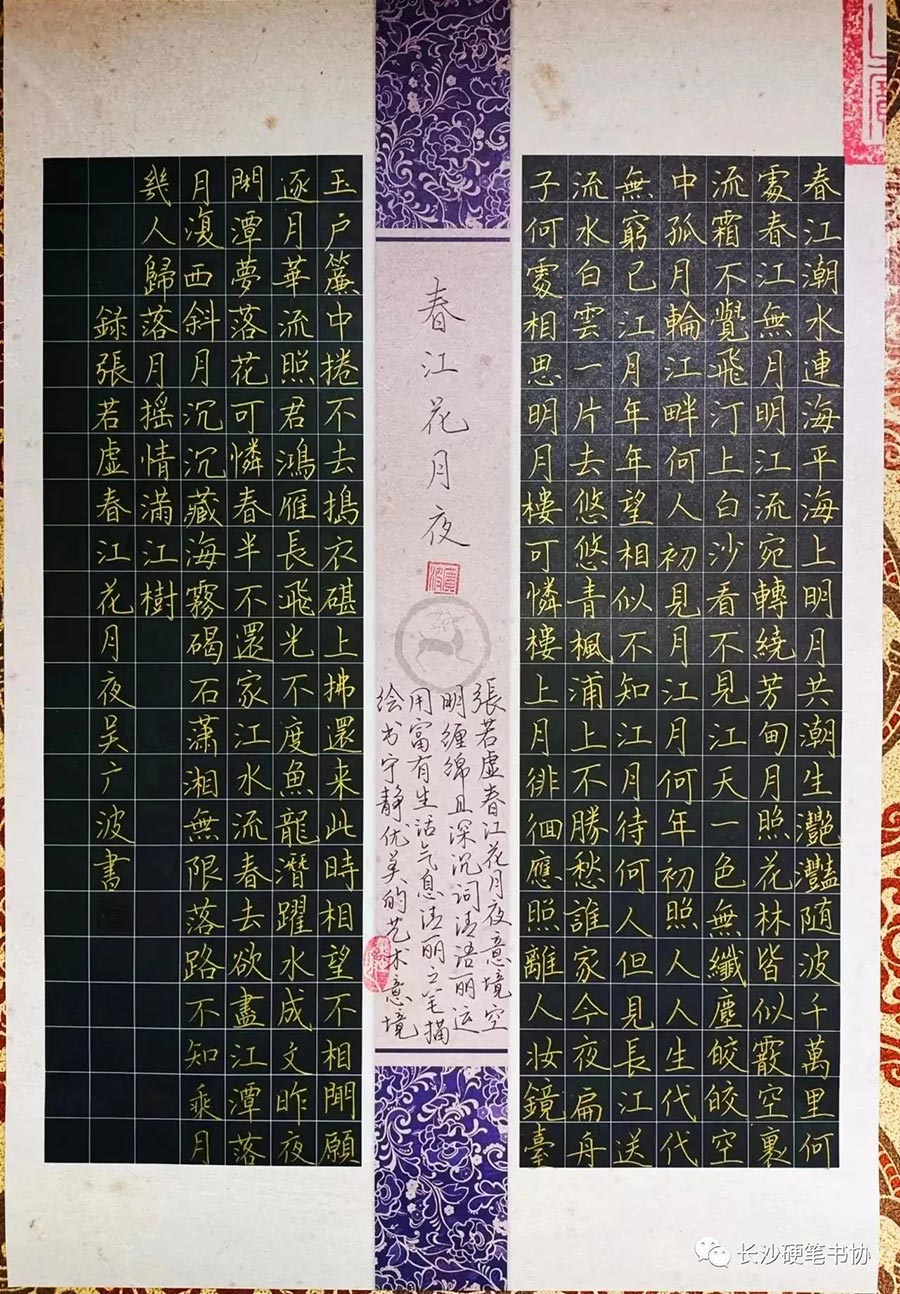 春江潮水連海平海上明月共潮生灧灩随波千萬里何
處春江無月明江流宛轉繞芳甸月照花林皆似霰空裏
流霜不覺飛汀上白沙看不見江天一色無纖塵皎皎空
中孤月輪江畔何人初見月江月何年初照人人生代代
無窮已江月年年望相似不知江月待何人但見長江送
流水白雲一片去悠悠青楓浦上不勝愁誰家今夜扁舟
子何處相思明月樓可憐樓上月徘徊應照離人妝鏡臺
春江花月夜
張若虚春江花月夜意境空
明缠绵且深沉词清语丽运
用富有生活气息清丽之笔描
绘书宁静优美的艺术意境
玉户簾中捲不去搗衣碪上拂還来此時相望不相聞願
逐月華流照君鴻雁長飛光不度魚龍潛躍水成文昨夜
閑潭夢落花可憐春半不還家江水流春去欲盡江潭落
月復西斜月沉沉藏海霧碣石瀟湘無限落路不知乘月
幾人歸落月摇情滿江樹
録張若虚春江花月夜吴广波書
长沙硬笔书协